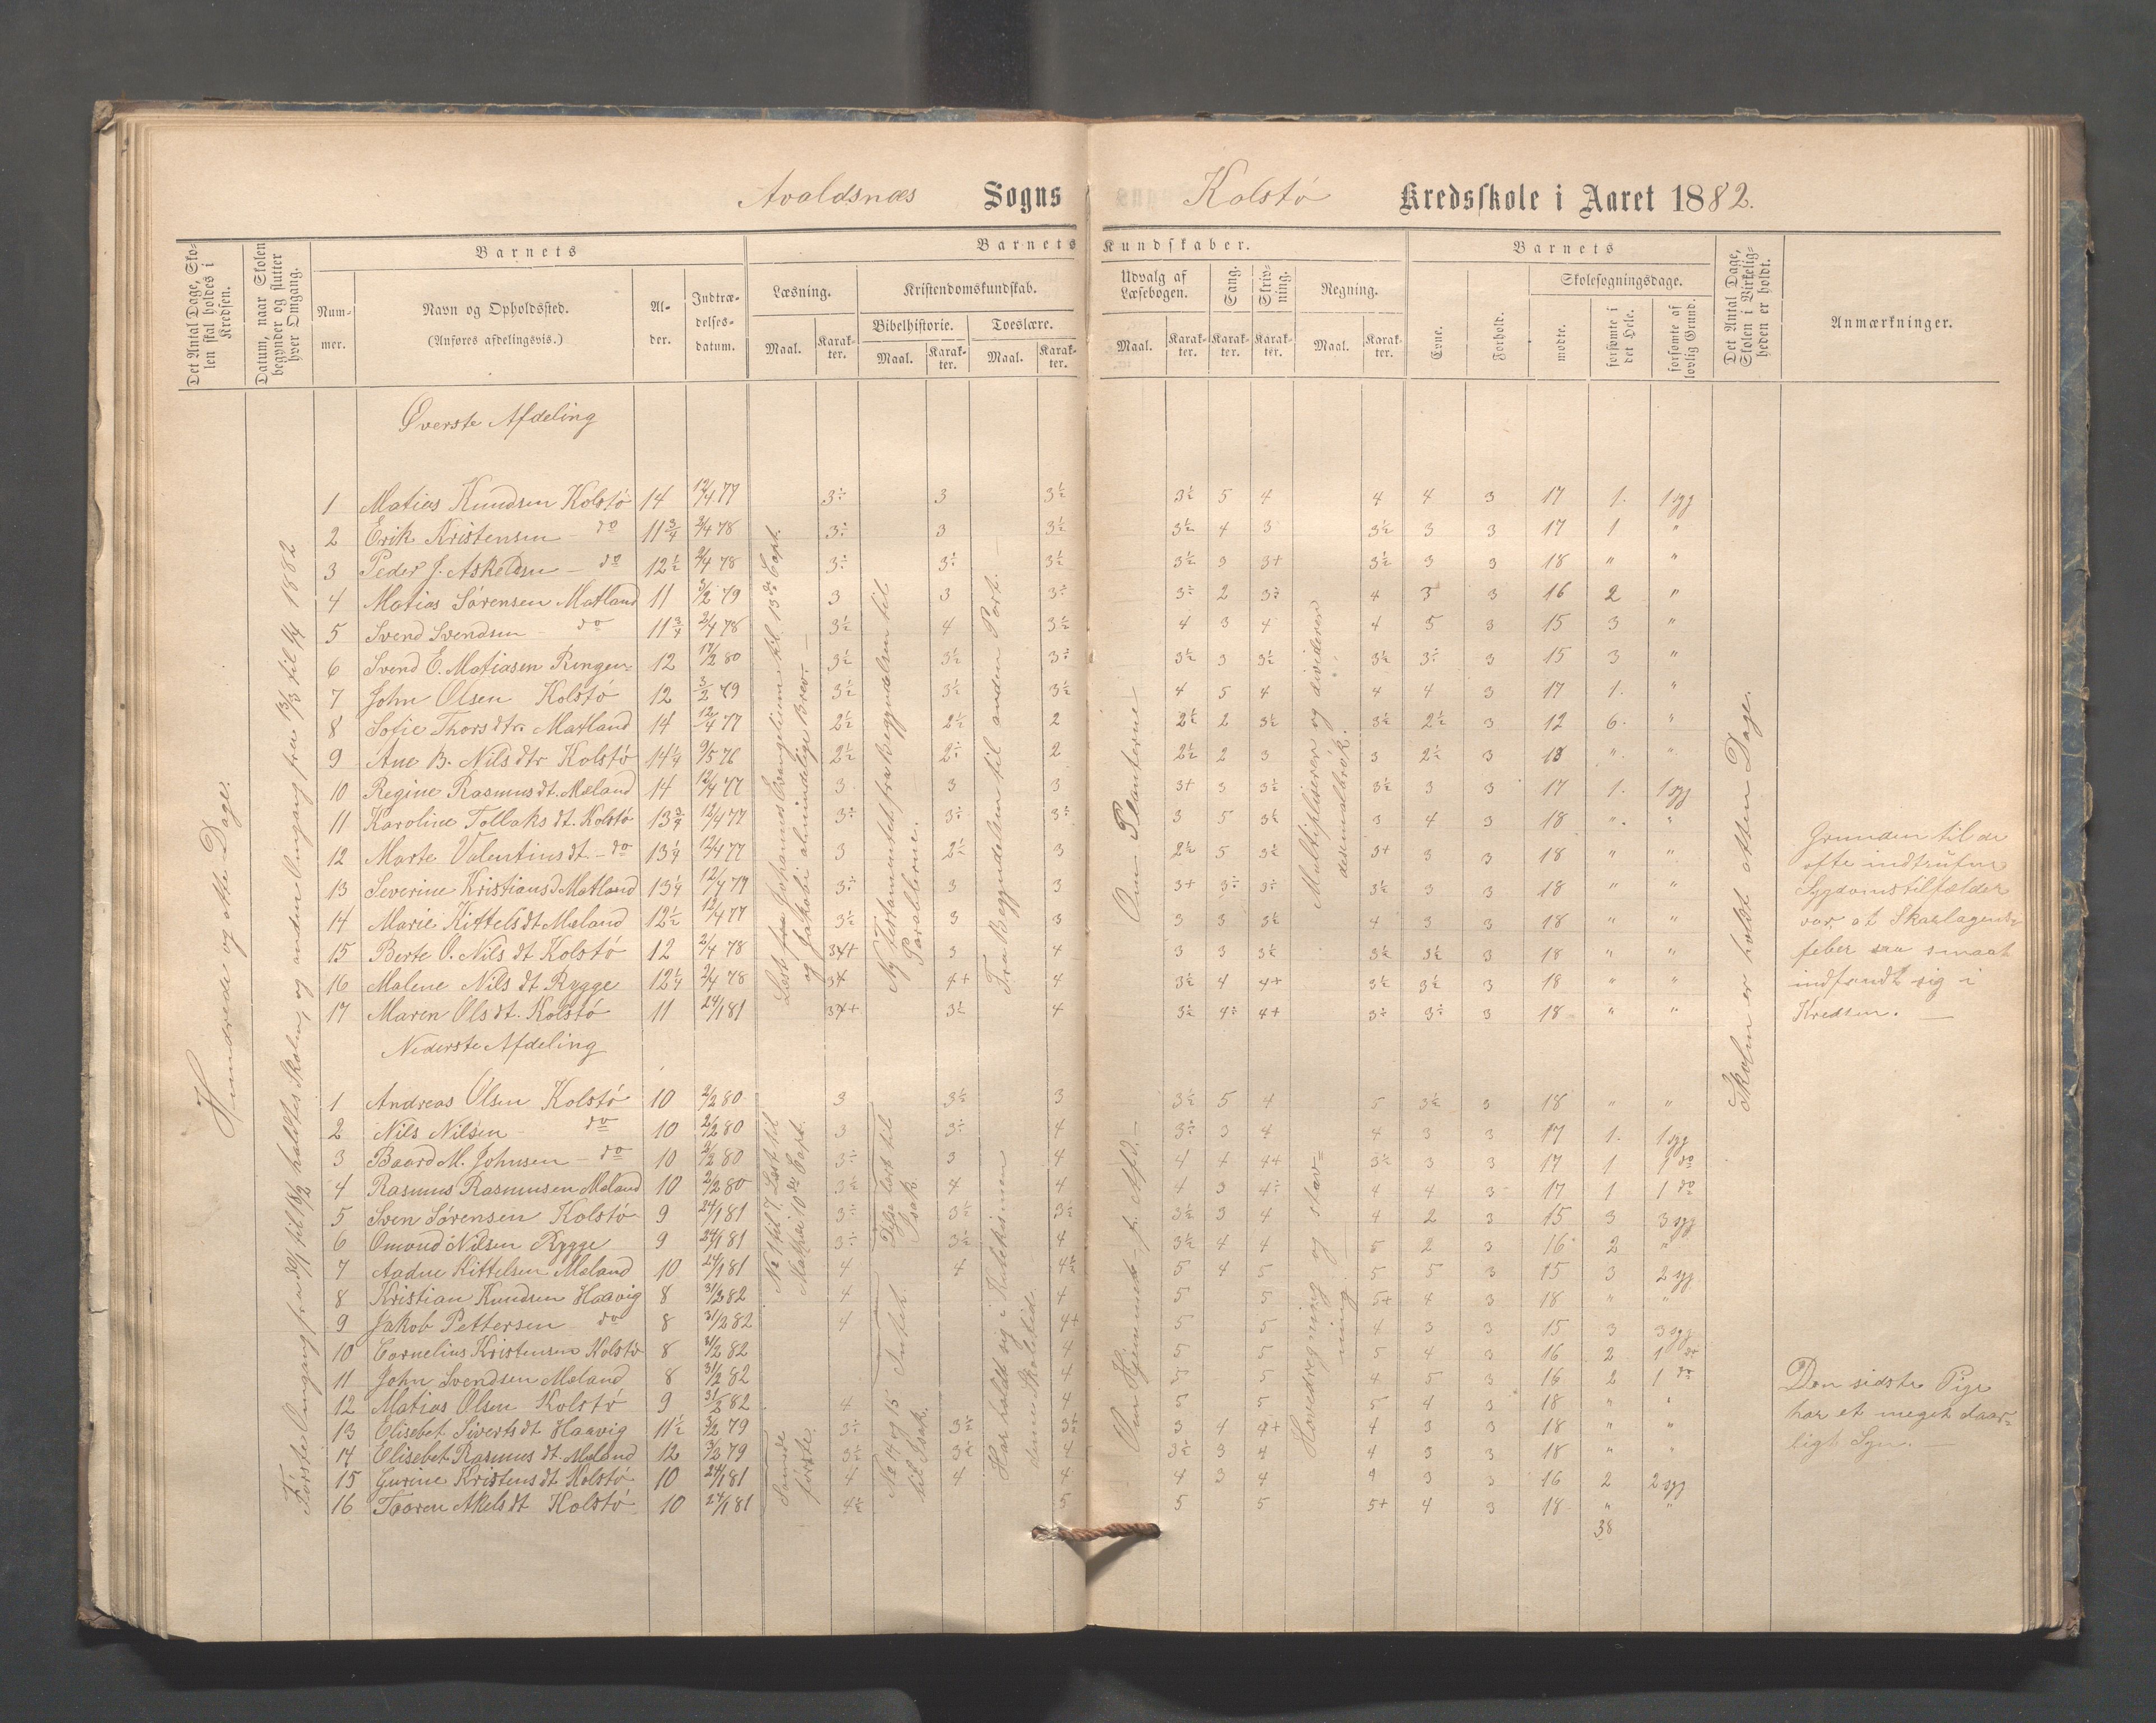 Avaldsnæs Sogns Kolstö Kredsskole i Aaret 1882.
Det Antal Dage, Skolen skal holdes i Kredsen.
Datum, naar Skolen begynder og slutter hver Omgang.
Barnets
Barnets Kundskaber.
Barnets
Det Antal Dage, Skolen i Virkeligheden er holdt.
Anmærkninger.
Nummer.
Navn og Opholdssted.
(Anføres afdelingsvis.)
Alder.
Indtrædelsesdatum.
Læsning.
Kristendomskundskab.
Udvalg af Læsebogen.
Sang.
Skrivning.
Regning.
Evne.
Forhold.
Skolesøgningsdage.
Bibelhistorie.
Troeslære.
mødte.
forsømte i det Hele.
forsømte af lovlig Grund.
Maal. Karakter. Maal. Karakter. Maal. Karakter. Maal. Karakter. Karakter. Karakter. Maal. Karakter.
Hundrede og otte Dage.
Første Omgang fra 30/1 til 18/2 holdtes Skolen, og anden Omgang fra 13/3 til 1/4 1882
Øverste Afdeling
1 Matias Knudsen Kolstö 14 12/4 77 3÷ 3 3½ 3½ 5 4 4 4 3 17 1. 1 syg
2 Erik Kristensen - do 11¾ 2/4 78 3÷ 3 3½ 3½ 4 3 3½ 3 3 17 1 "
3 Peder J. Askeldsn - do 12½ 2/4 78 3÷ 3÷ 3½ 3½ 3 3+ 3½ 3 3 18 " "
4 Matias Sörensen Matland 11 3/2 79 3 3 3÷ 3÷ 2 3÷ 4 3 3 16 2 "
5 Svend Svendsen - do 11¾ 2/4 78 3½ 4 3½ 4 3 4 4 5 3 15 3 "
6 Svend E. Matiasen Ringen 12 17/2 80 3½ 3½ 3÷ 3½ 3 3½ 3½ 3÷ 3 15 3 "
7 John Olsen Kolstö 12 3/2 79 3½ 3½ 3½ 4 5 4 4 4 3 17 1. "
8 Sofie Thorsdtr. Matland 14 12/4 77 2½ 2½ 2 2½ 2 3½ 3½ 2½ 3 12 6. "
9 Ane B. Nilsdtr Kolstö 14¼ 9/5 76 2½ 2÷ 2 2½ 2 3 3 2½ 3 18 " "
10 Regine Rasmusdt. Mæland 14 12/4 77 3 3 3 3+ 3 3½ 3½ 3 3 17 1. 1 syg
11 Karoline Tollaksdt. Kolstö 13¾ 12/4 77 3÷ 3÷ 3÷ 3 5 3½ 3 4 3 18 " "
12 Marte Valentinsdt - do 13¼ 12/4 77 3 2½ 3 2½ 5 3½ 3+ 3 3 18 " "
13 Severine Kristiansd Matland 13¼ 12/4 77 3÷ 3 3 3+ 3÷ 3÷ 3½ 3 3 18 " "
14 Marie Kittelsdt Mæland 12½ 12/4 77 3½ 3 3 3 3 3½ 4 3 3 18 " "
15 Berte O. Nilsdt Kolstö 12 2/4 78 3 4 3 3 3½ 3½ 3½ 3 18 " "
16 Malene Nilsdt Rygge 12¼ 2/4 78 4+ 4 3½ 4 4+ 3½ 3½ 3 18 " "
17 Maren Olsdt. Kolstö 11 24/1 81 3½ 4 3½ 4÷ 4+ 3÷ 3÷ 3 18 " "
Læst fra Johannes Evangelium til 13de Capt.
og Jakobi almindelige Brev. —
Ny Testamentet fra begyndelsen til
Parablerne.
Fra Begyndelsen til anden Part. —
Om Planterne —
Multipliserer og dividerer
desimalbrök.
Skolen er holdt atten Dage.
Grunden til de
ofte indtrufne
Sygdomstilfælder
var, at Skarlagens-
feber saa smaat
indfandt sig i
Kredsen. —
Nederste Afdeling
1 Andreas Olsen Kolstö 10 2/2 80 3 3½ 3 3½ 5 4 5 3½ 3 18 " "
2 Nils Nilsen - do 10 2/2 80 3 3÷ 4 3÷ 3 4 4 3 3 17 1. 1 syg
3 Baard M. Johnsen - do 10 2/2 80 3÷ 3 4 4 4 4+ 3½ 3 3 17 1 1 do
4 Rasmus Rasmusen Mæland 10 2/2 80 3½ 4 4 4 3 4÷ 4 4 3 17 1 1 do
5 Sven Sörensen Kolstö 9 24/1 81 3÷ 3½ 3½ 3½ 3 4 4 2 3 15 3 3 syg
6 Omund Nilsen Rygge 9 24/1 81 3÷ 3½ 4 3½ 4 4 5 2 3 16 2 "
7 Aadne Kittelsen Mæland 10 24/1 81 4 4 4½ 5 4 5 5 5 3 15 3 2 syg
8 Kristian Knudsen Haavig 8 31/2 82 4 4 5 5 5+ 4 3 18 " "
9 Jakob Pettersen - do 8 31/2 82 4 4+ 5 5 4 3 3 15 3 3 syg
10 Cornelius Kristensen Kolstö 8 31/2 82 4 5 5 5 4 3 16 2 1 do
11 John Svendsen Mæland 8 31/2 82 4 5 5 4 5 3 16 2 1 do
12 Matias Olsen Kolstö 9 31/2 82 4 4 5 5 5 4 3 18 " "
13 Elisebet Sivertsdt Haavig 11½ 3/2 79 3÷ 3½ 3÷ 3 4 4+ 4 3 3 18 " "
14 Elisebet Rasmusdt. Mæland 12 3/2 79 3½ 3½ 4 3½ 3 4 4 3 3 18 " "
15 Gurine Kristensdt Kolstö 10 24/1 81 4 4 4 4 3 4 4 3 3 16 2 2 syg
16 Taaren Akelsdt Kolstö 10 24/1 81 4½ 5 5 5 5+ 4 3 18 " "
38
No 1 til 7. Læst til
Matthæi 10de Capt.
Samme
förste.
Disse læst til
Isak
Intet.
No 14 og 15
til Isak.
Har holdt sig i Katekismen
denne Skoletid.
Om Hjemmet - p. Afd. —
Hovedregning og stav-
ning
Den sidste Pige
har et meget daar-
ligt Syn. —